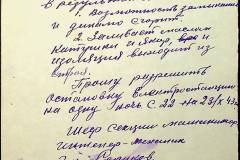 в результате
1. возможность замыкания
и динамо сгорит.
2. Замывает маслом
катушки и якор, и
изоляция выходит из
строя.
Прошу разрешить
остановку електростанции
на одну ночь с 22 на 23/X 43
Шеф секции
инженер-механик